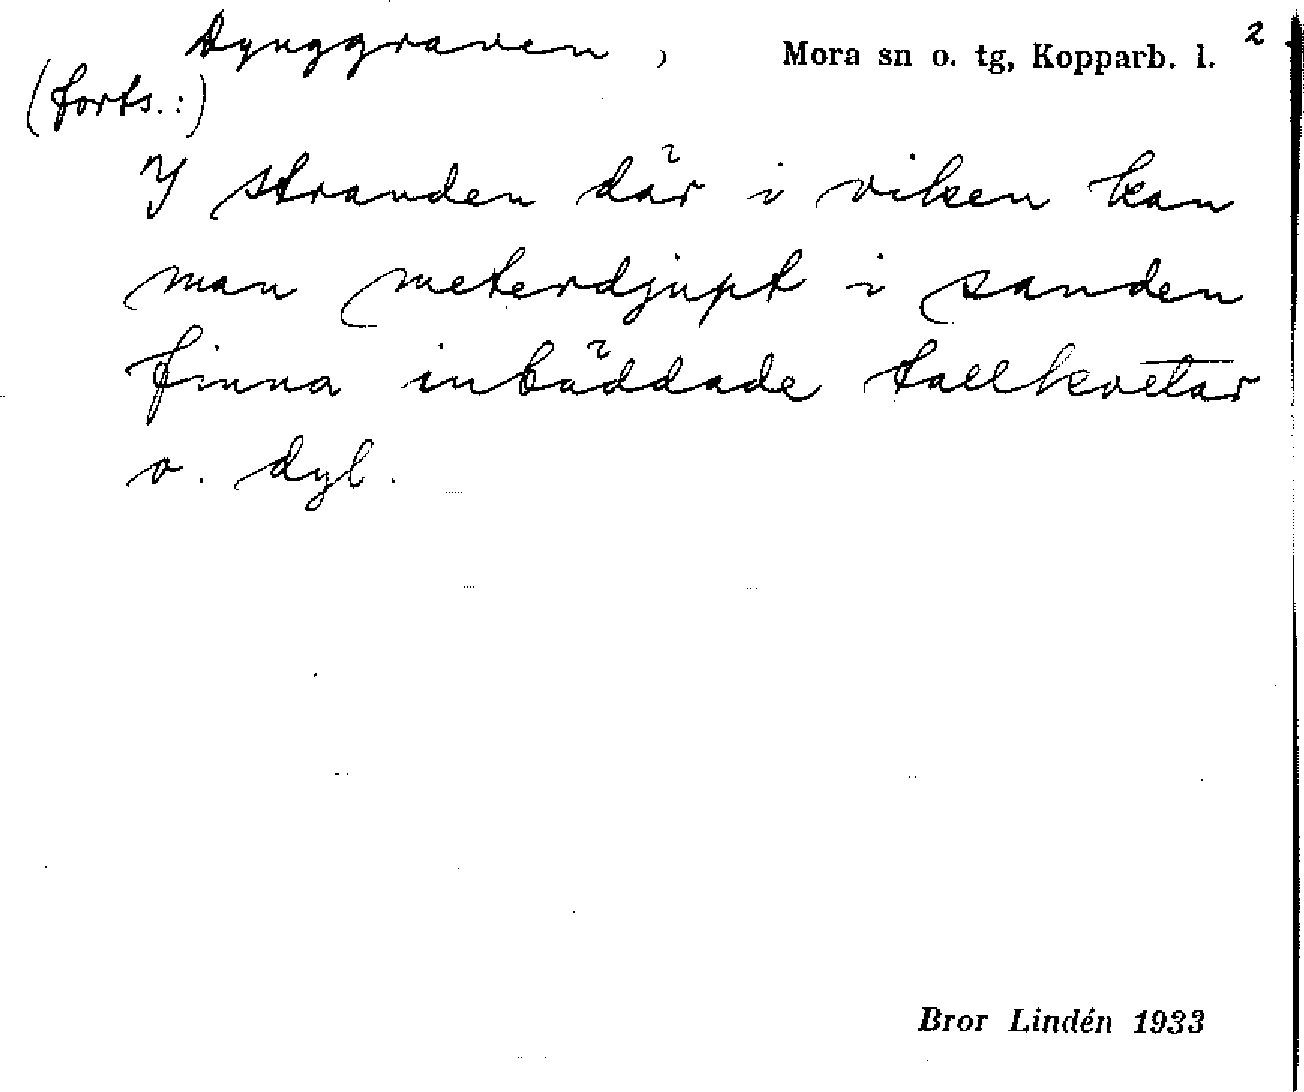 Dynggraven, Mora sn o. tg, Kopparb. l. 2
(forts.:)
I stranden där i viken kan
man meterdjupt i sanden
finna inbäddade tallkvetar
o. dyl.
Bror Lindén 1933